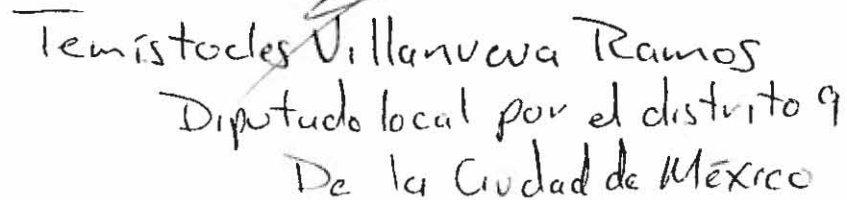 Temístocles Villanueva Ramos
Diputado local por el distrito 9
De la Ciudad de México